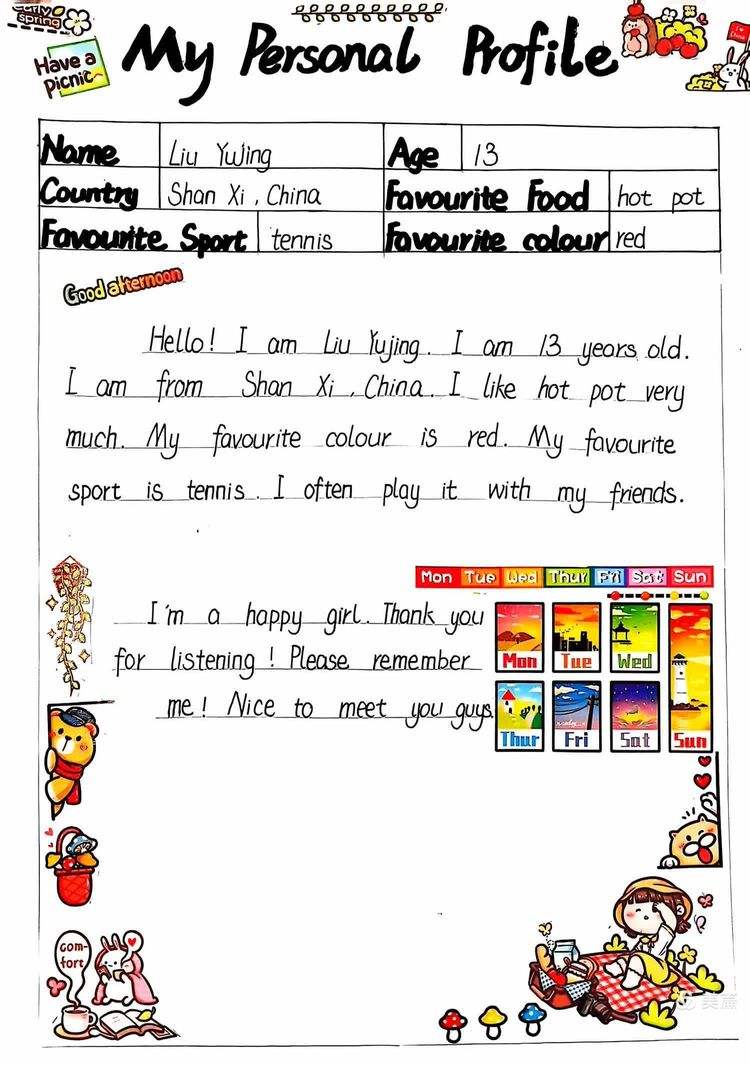 early
spring
Have a
picnic
My Personal Profile
Name Liu Yujing Age 13
Country Shan Xi , China Favourite Food hot pot
Favourite Sport tennis Favourite colour red
Good afternoon
Hello! I am Liu Yujing. I am 13 years old.
I am from Shan Xi , China. I like hot pot very
much. My favourite colour is red. My favourite
sport is tennis. I often play it with my friends.
Mon Tue Wed Thur Fri Sat Sun
I'm a happy girl. Thank you
for listening! Please remember
me! Nice to meet you guys.
Mon Tue Wed
Thur Fri Sat Sun
com-
fort
美篇